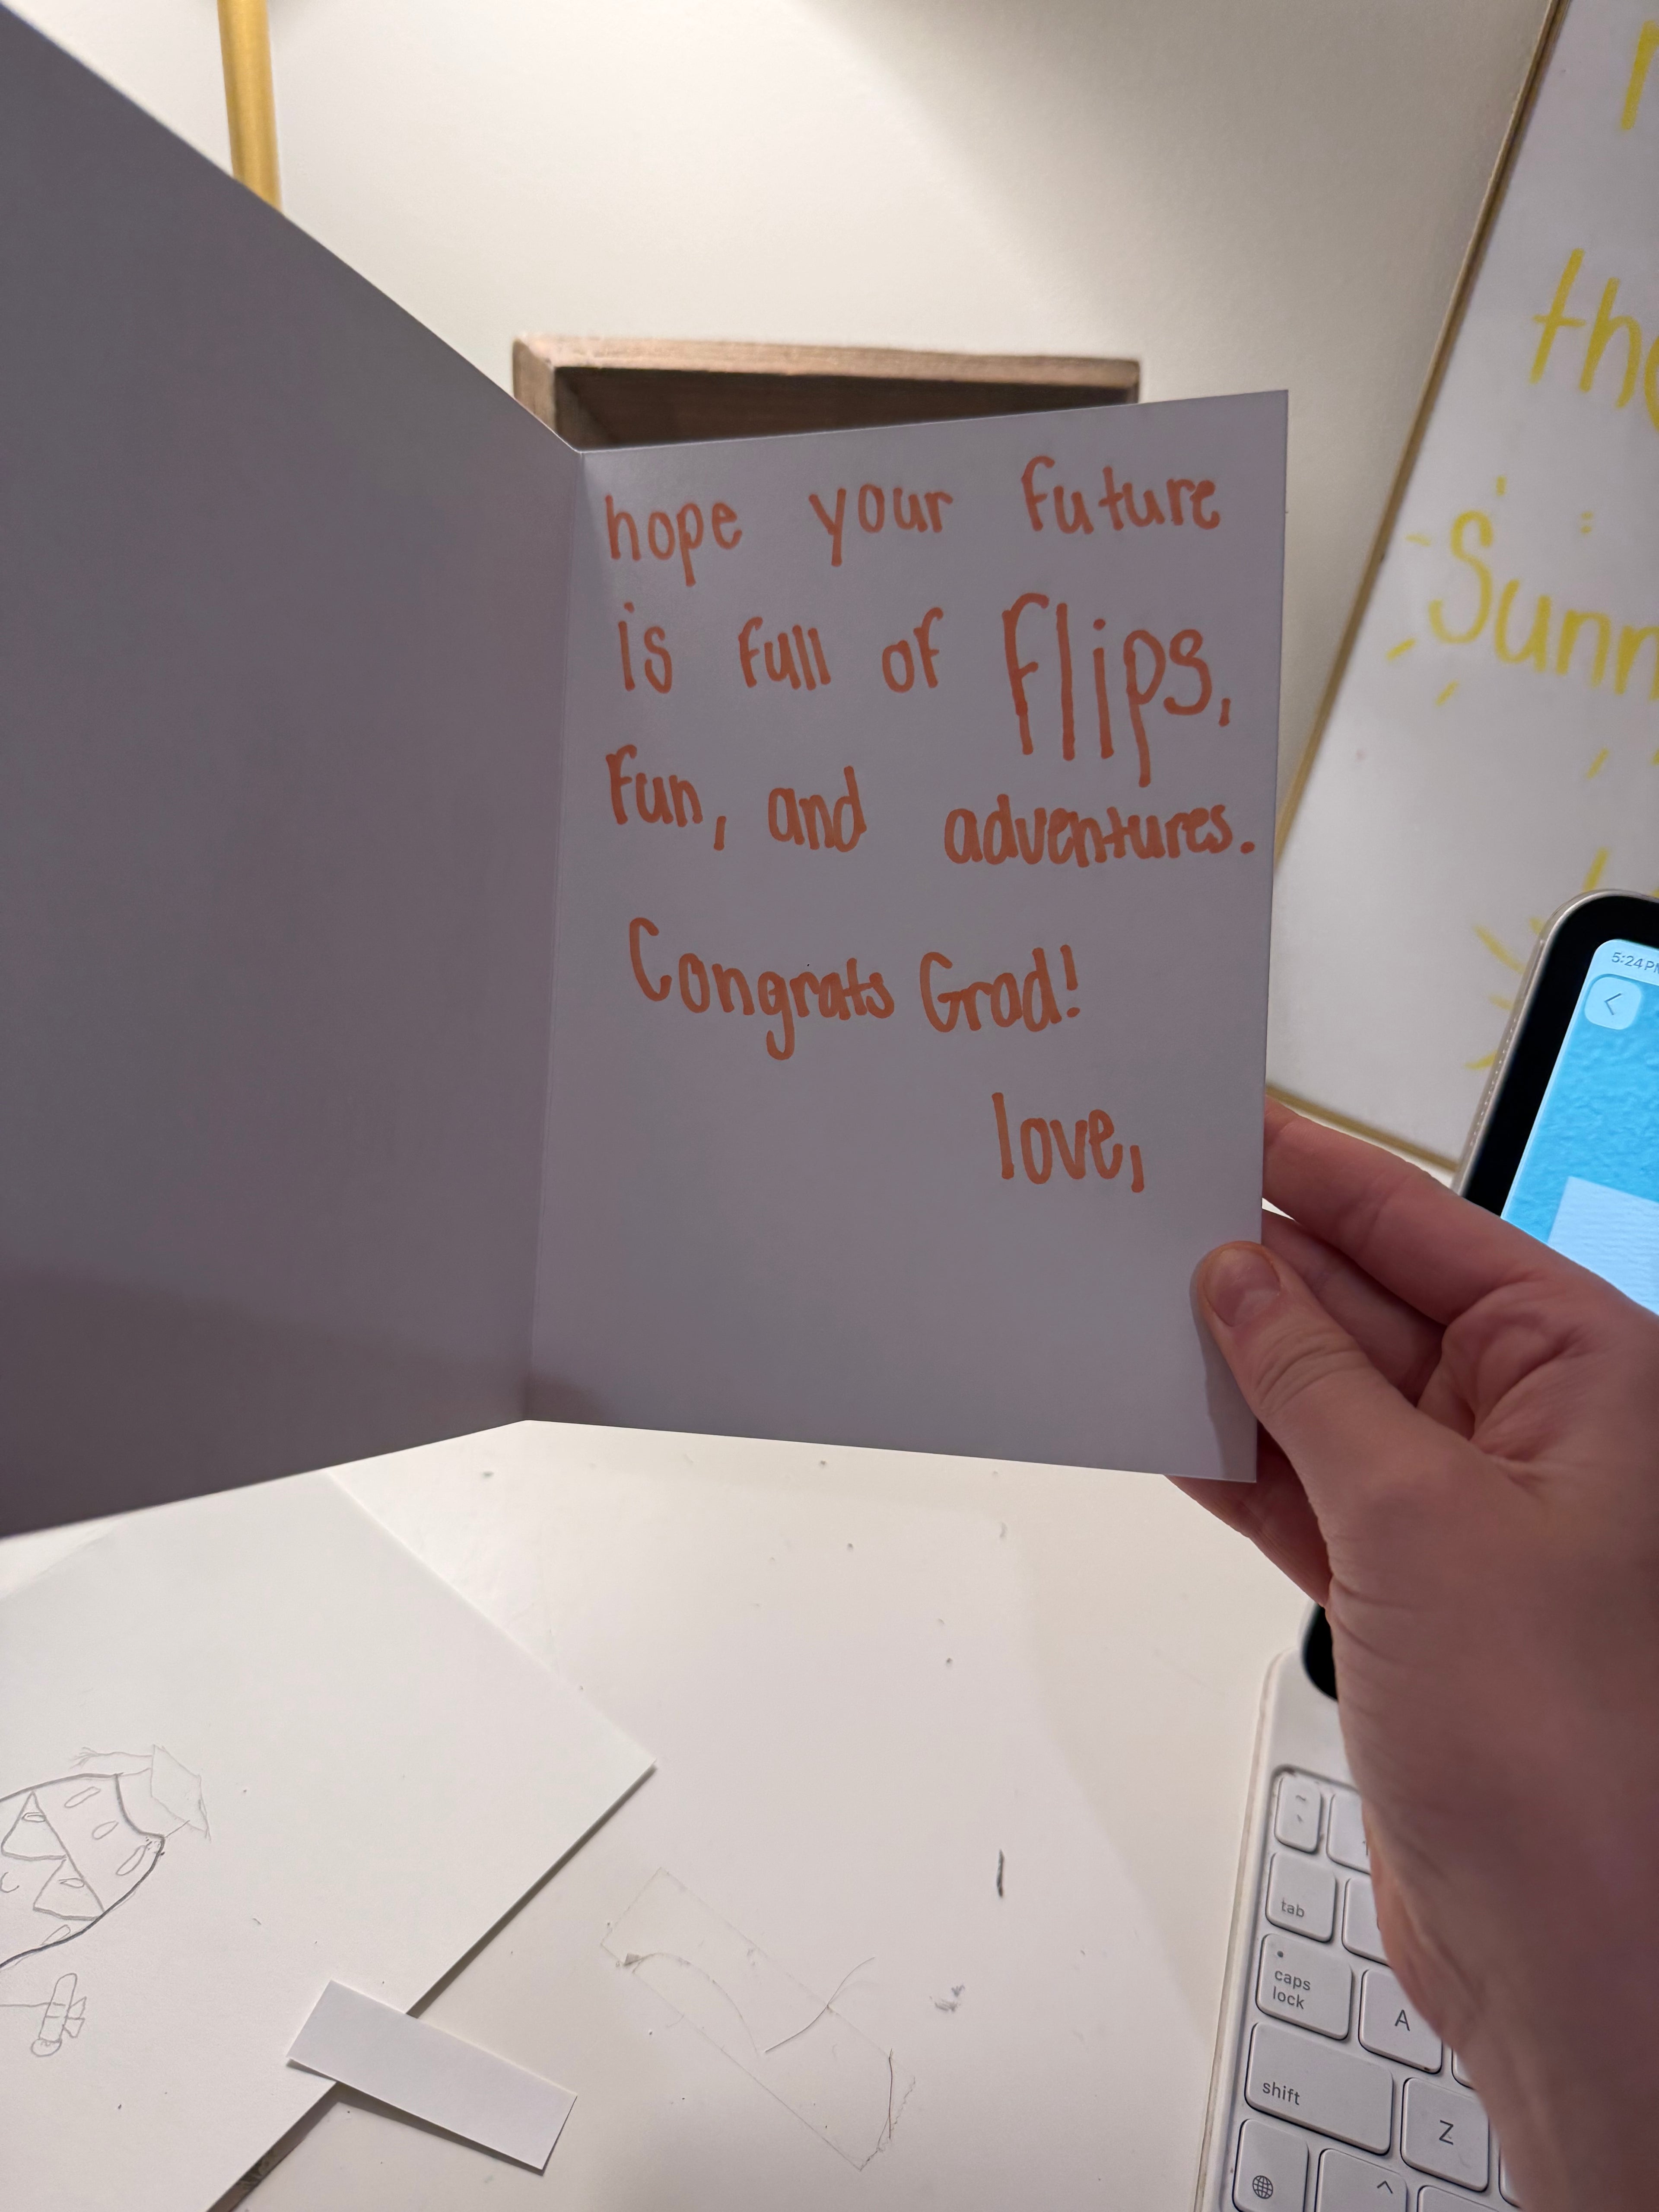 hope your future
is full of flips,
Fun, and adventures.
Congrats Grad!
love,
5:24 PM
tab
caps
lock
A
shift
Z